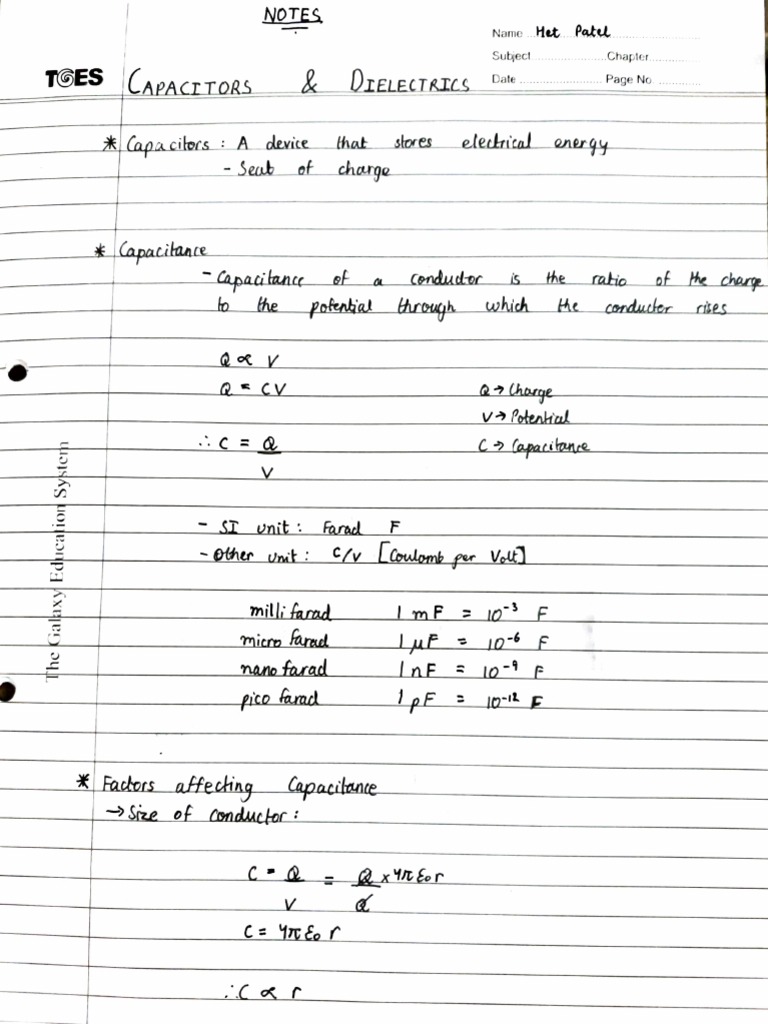 NOTES
Name Het Patel
Subject Chapter
Date Page No
TGES CAPACITORS & DIELECTRICS
* Capacitors : A device that stores electrical energy
- Seat of charge
* Capacitance
- Capacitance of a conductor is the ratio of the charge
to the potential through which the conductor rises
Q ∝ V
Q = CV
Q → Charge
V → Potential
∴ C = Q/V
C → Capacitance
- SI unit : Farad F
- Other unit : C/V [Coulomb per Volt]
milli farad 1 mF = 10⁻³ F
micro farad 1 μF = 10⁻⁶ F
nano farad 1 nF = 10⁻⁹ F
pico farad 1 pF = 10⁻¹² F
The Galaxy Education System
* Factors affecting Capacitance
→ Size of conductor :
C = Q/V = Q/Q × 4πε₀r
C = 4πε₀ r
∴ C ∝ r